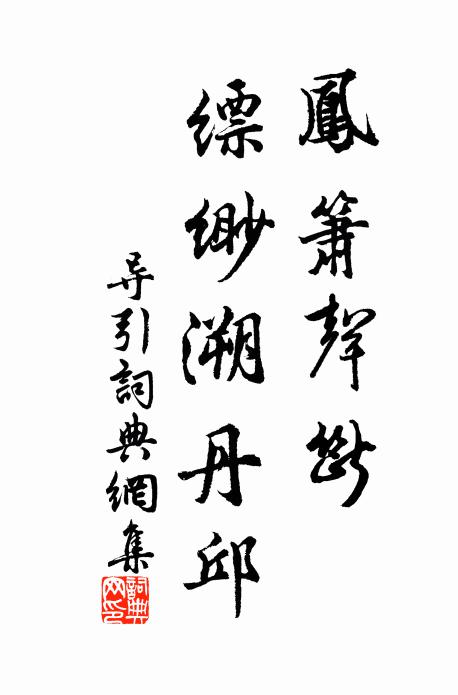 鳳簫聲斷
縹緲溯丹邱
导引詞典網集
詞典网印